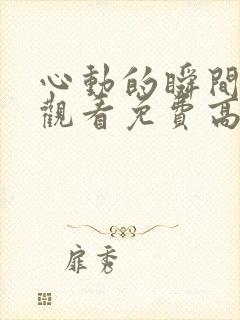 心動的瞬間
觀看免費高
扉秀